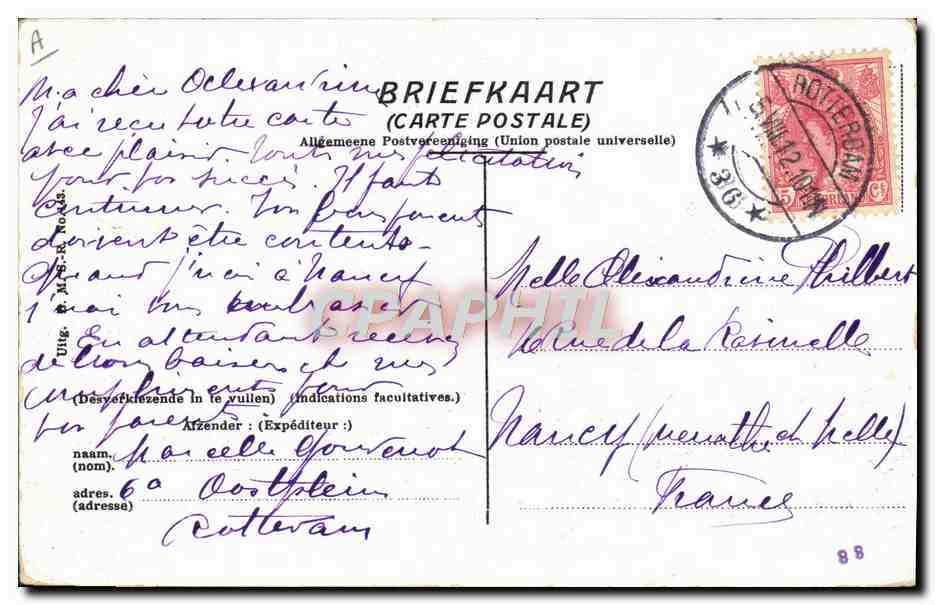 A
BRIEFKAART
(CARTE POSTALE)
Allgemeene Postvereeniging (Union postale universelle)
Ma chère Alexandrine
J'ai reçu votre carte
avec plaisir. Toutes mes félicitations
pour vos succès. Il faut
continuer. Vos bons parents
doivent être contents.
Quand j'irai à Nancy
j'irai vous embrasser
En attendant recevez
de bons baisers et mes
compliments pour
vos parents
Marcelle
6a Oostplein
Rotterdam
Uitg. No. 143.
(Desverkiezende in te vullen) (Indications facultatives.)
Afzender : (Expéditeur :)
naam.
(nom).
adres.
(adresse)
ROTTERDAM
12.10
3/6
5 Ct
Melle Alexandrine Philbert
Rue de la
Nancy (Meurthe et Mselle)
France
CPAPHIL
88